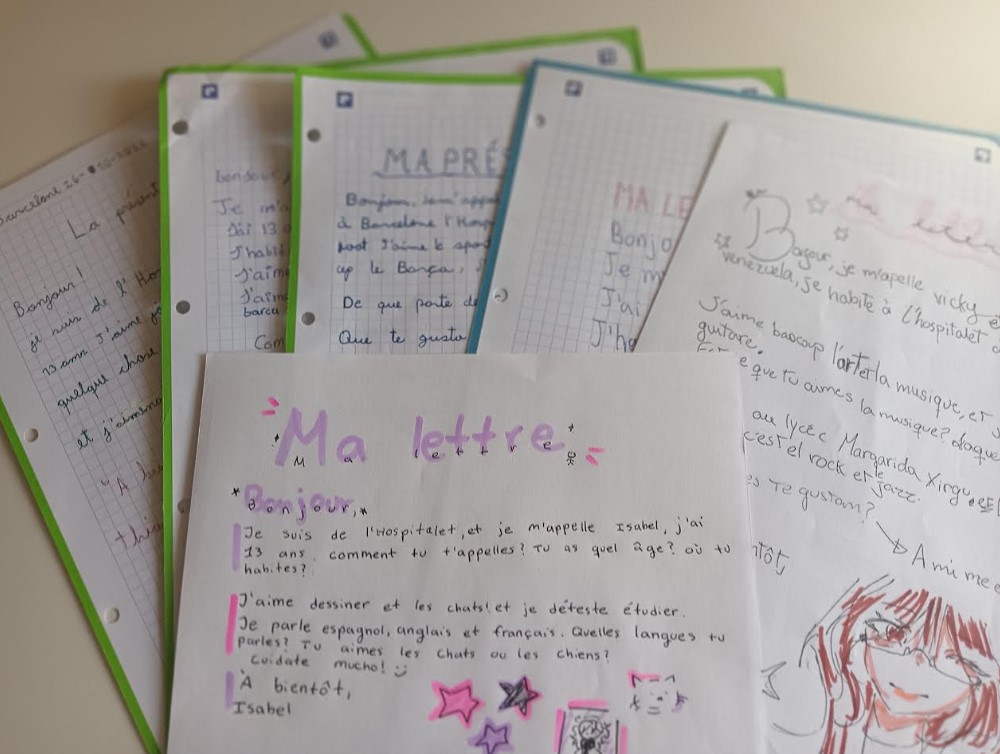 Barcelone
La présent
Bonjour!
je suis de l'Hos
13 ans J'aime jo
quelque chose
et j'aimme
"A
bonjour
Je m'a
J'ai 13 a
J'habit
J'aime
J'aime
barça
Com
MA PRÉS
Bonjour, je m'appe
à Barcelone l'Hosp
J'aime le spor
up le Barça,
De que parte de
Que te gusta
MA LE
Bonjo
Je m
J'ai
J'ha
Ma lettre
Bogour, je m'apelle vicky
venezuela, je habite à l'hospitalet
J'aime baocoup l'art et la musique, et
guitare.
e que tu aimes la musique?
au lycéc Margarida Xirgu,
c'est el rock et le jazz.
es Te gustan?
ntôt,
A mi me
Ma lettre
Ma lettre
Bonjour,
Je suis de l'Hospitalet, et je m'appelle Isabel, j'ai
13 ans. comment tu t'appelles? Tu as quel âge? où tu
habites?
J'aime dessiner et les chats! et je déteste étudier.
Je parle espagnol, anglais et français. Quelles langues tu
parles? Tu aimes les chats ou les chiens?
Cuidate mucho!
À bientôt,
Isabel